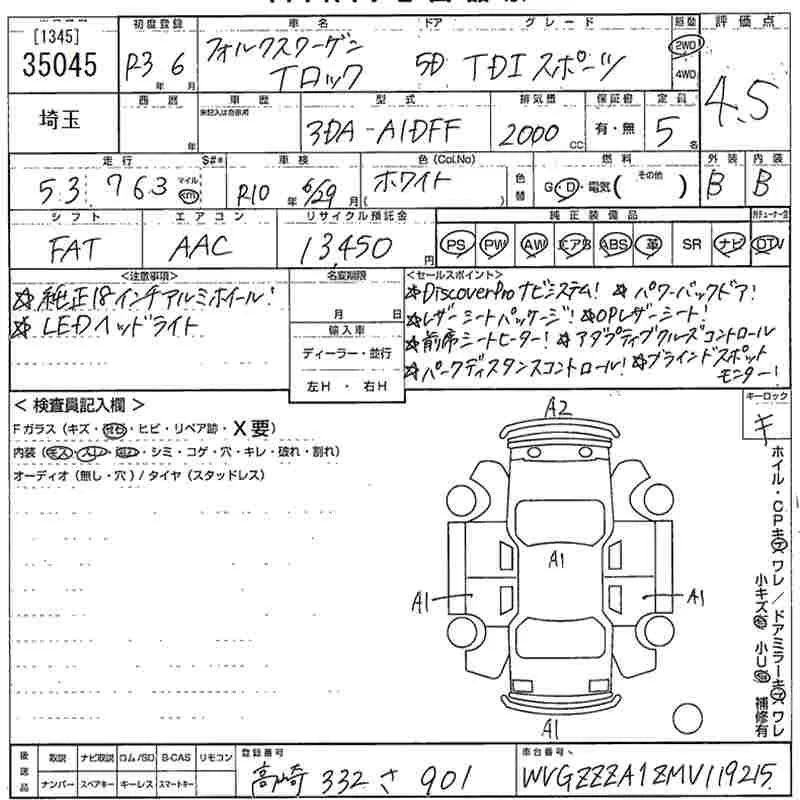 [1345]
35045
初度登録
R3 年 6 月
車名
フォルクスワーゲン
Tロック
ドア
5D
グレード
TDI スポーツ
駆動
2WD
4WD
評価点
4.5
埼玉
西暦
年
車歴
未記入は自家用
型式
3DA-A1DFF
排気量
2000 CC
保証書
有・無
定員
5 名
走行
53,763
マイル
km
S#*
車検
R10 年 6/29 月
色(Col.No)
ホワイト
( )
色替
燃料
G・D・電気( その他 )
外装
B
内装
B
シフト
FAT
エアコン
AAC
リサイクル預託金
13450 円
純正装備品
PS PW AW エアB ABS 革 SR ナビ DTV
<注意事項>
☆ 純正18インチアルミホイール!
☆ LEDヘッドライト
名変期限
月 日
輸入車
ディーラー・並行
左H ・ 右H
<セールスポイント>
☆DiscoverProナビシステム! ☆ パワーバックドア!
☆レザーシートパッケージ! ☆OPレザーシート!
☆前席シートヒーター! ☆アダプティブクルーズコントロール
☆パークディスタンスコントロール! ☆ブラインドスポット
モニター!
< 検査員記入欄 >
Fガラス(キズ・飛石・ヒビ・リペア跡・X要)
・シミ・コゲ・穴・キレ・破れ・割れ)
オーディオ(無し・穴)/タイヤ(スタッドレス)
キーロック
キ
A2
A1
A1
A1
A1
ホイル・CPキズ ワレ/ドアミラーキズ ワレ
小キズ有 小U有 補修有
後送品
取説 ナビ取説 ロム/SD B-CAS リモコン
ナンバー スペアキー キーレス スマートキー
登録番号
高崎 332 さ 901
車台番号
WVGZZZA1ZMV119215